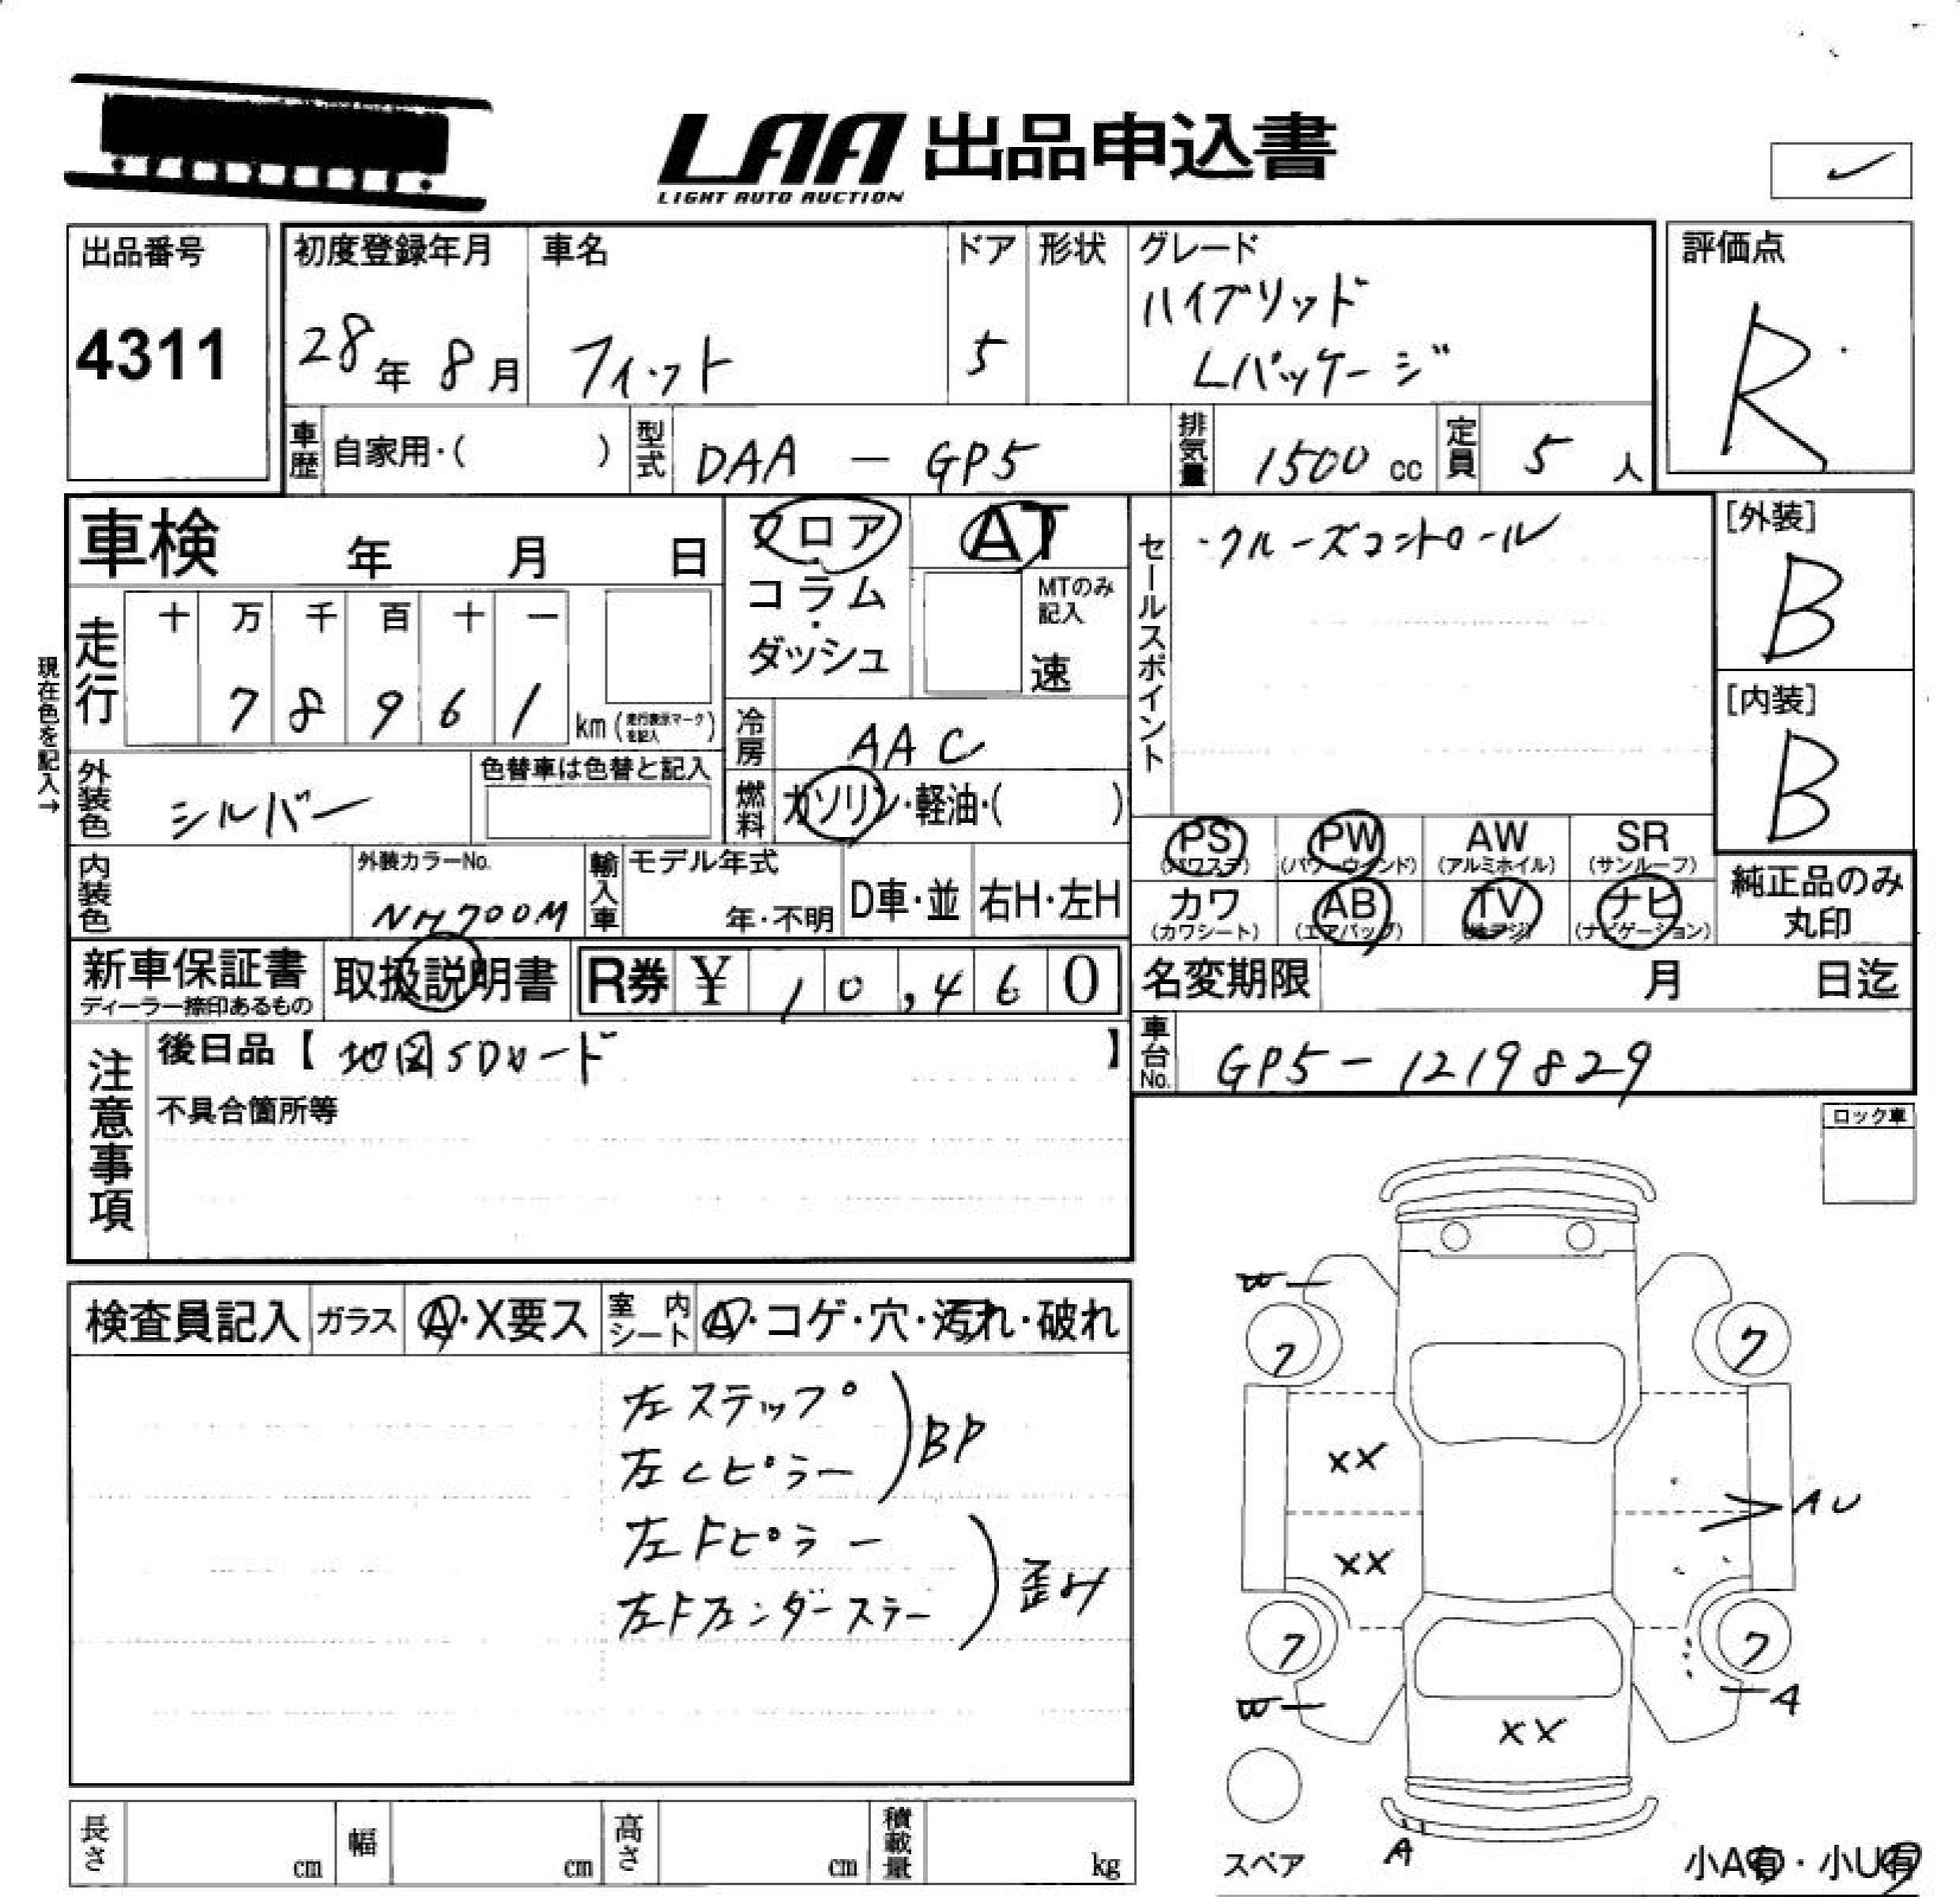 LAA 出品申込書
LIGHT AUTO AUCTION
出品番号
4311
初度登録年月
28年 8月
車名
フィット
ドア
5
形状
グレード
ハイブリッド
Lパッケージ
評価点
R
車歴 自家用・( )
型式 DAA - GP5
排気量 1500 cc
定員 5 人
車検 年 月 日
フロア
コラム
・
ダッシュ
AT
MTのみ
記入
速
セールスポイント
・クルーズコントロール
[外装]
B
[内装]
B
現在色を記入→
走行
十 万 千 百 十 一
7 8 9 6 1 km (走行表示マークを記入)
冷房 AAC
燃料 ガソリン・軽油・( )
外装色 シルバー
色替車は色替と記入
内装色
外装カラーNo.
NH700M
輸入車
モデル年式
年・不明
D車・並
右H・左H
PS
(パワステ)
PW
(パワーウィンド)
AW
(アルミホイル)
SR
(サンルーフ)
カワ
(カワシート)
AB
(エアバッグ)
TV
(地デジ)
ナビ
(ナビゲーション)
純正品のみ
丸印
新車保証書
ディーラー捺印あるもの
取扱説明書
R券 ¥ 10,460
名変期限 月 日迄
車台No. GP5-1219829
注意事項
後日品【 地図SDカード 】
不具合箇所等
ロック車
検査員記入
ガラス A・X要ス
室内シート A・コゲ・穴・汚れ・破れ
左ステップ
左Cピラー
BP
左Fピラー
左Fフェンダーステー
歪み
W
7
7
XX
AU
XX
7
7
W
A
XX
A
スペア
小A有・小U有
長さ cm
幅 cm
高さ cm
積載量 kg